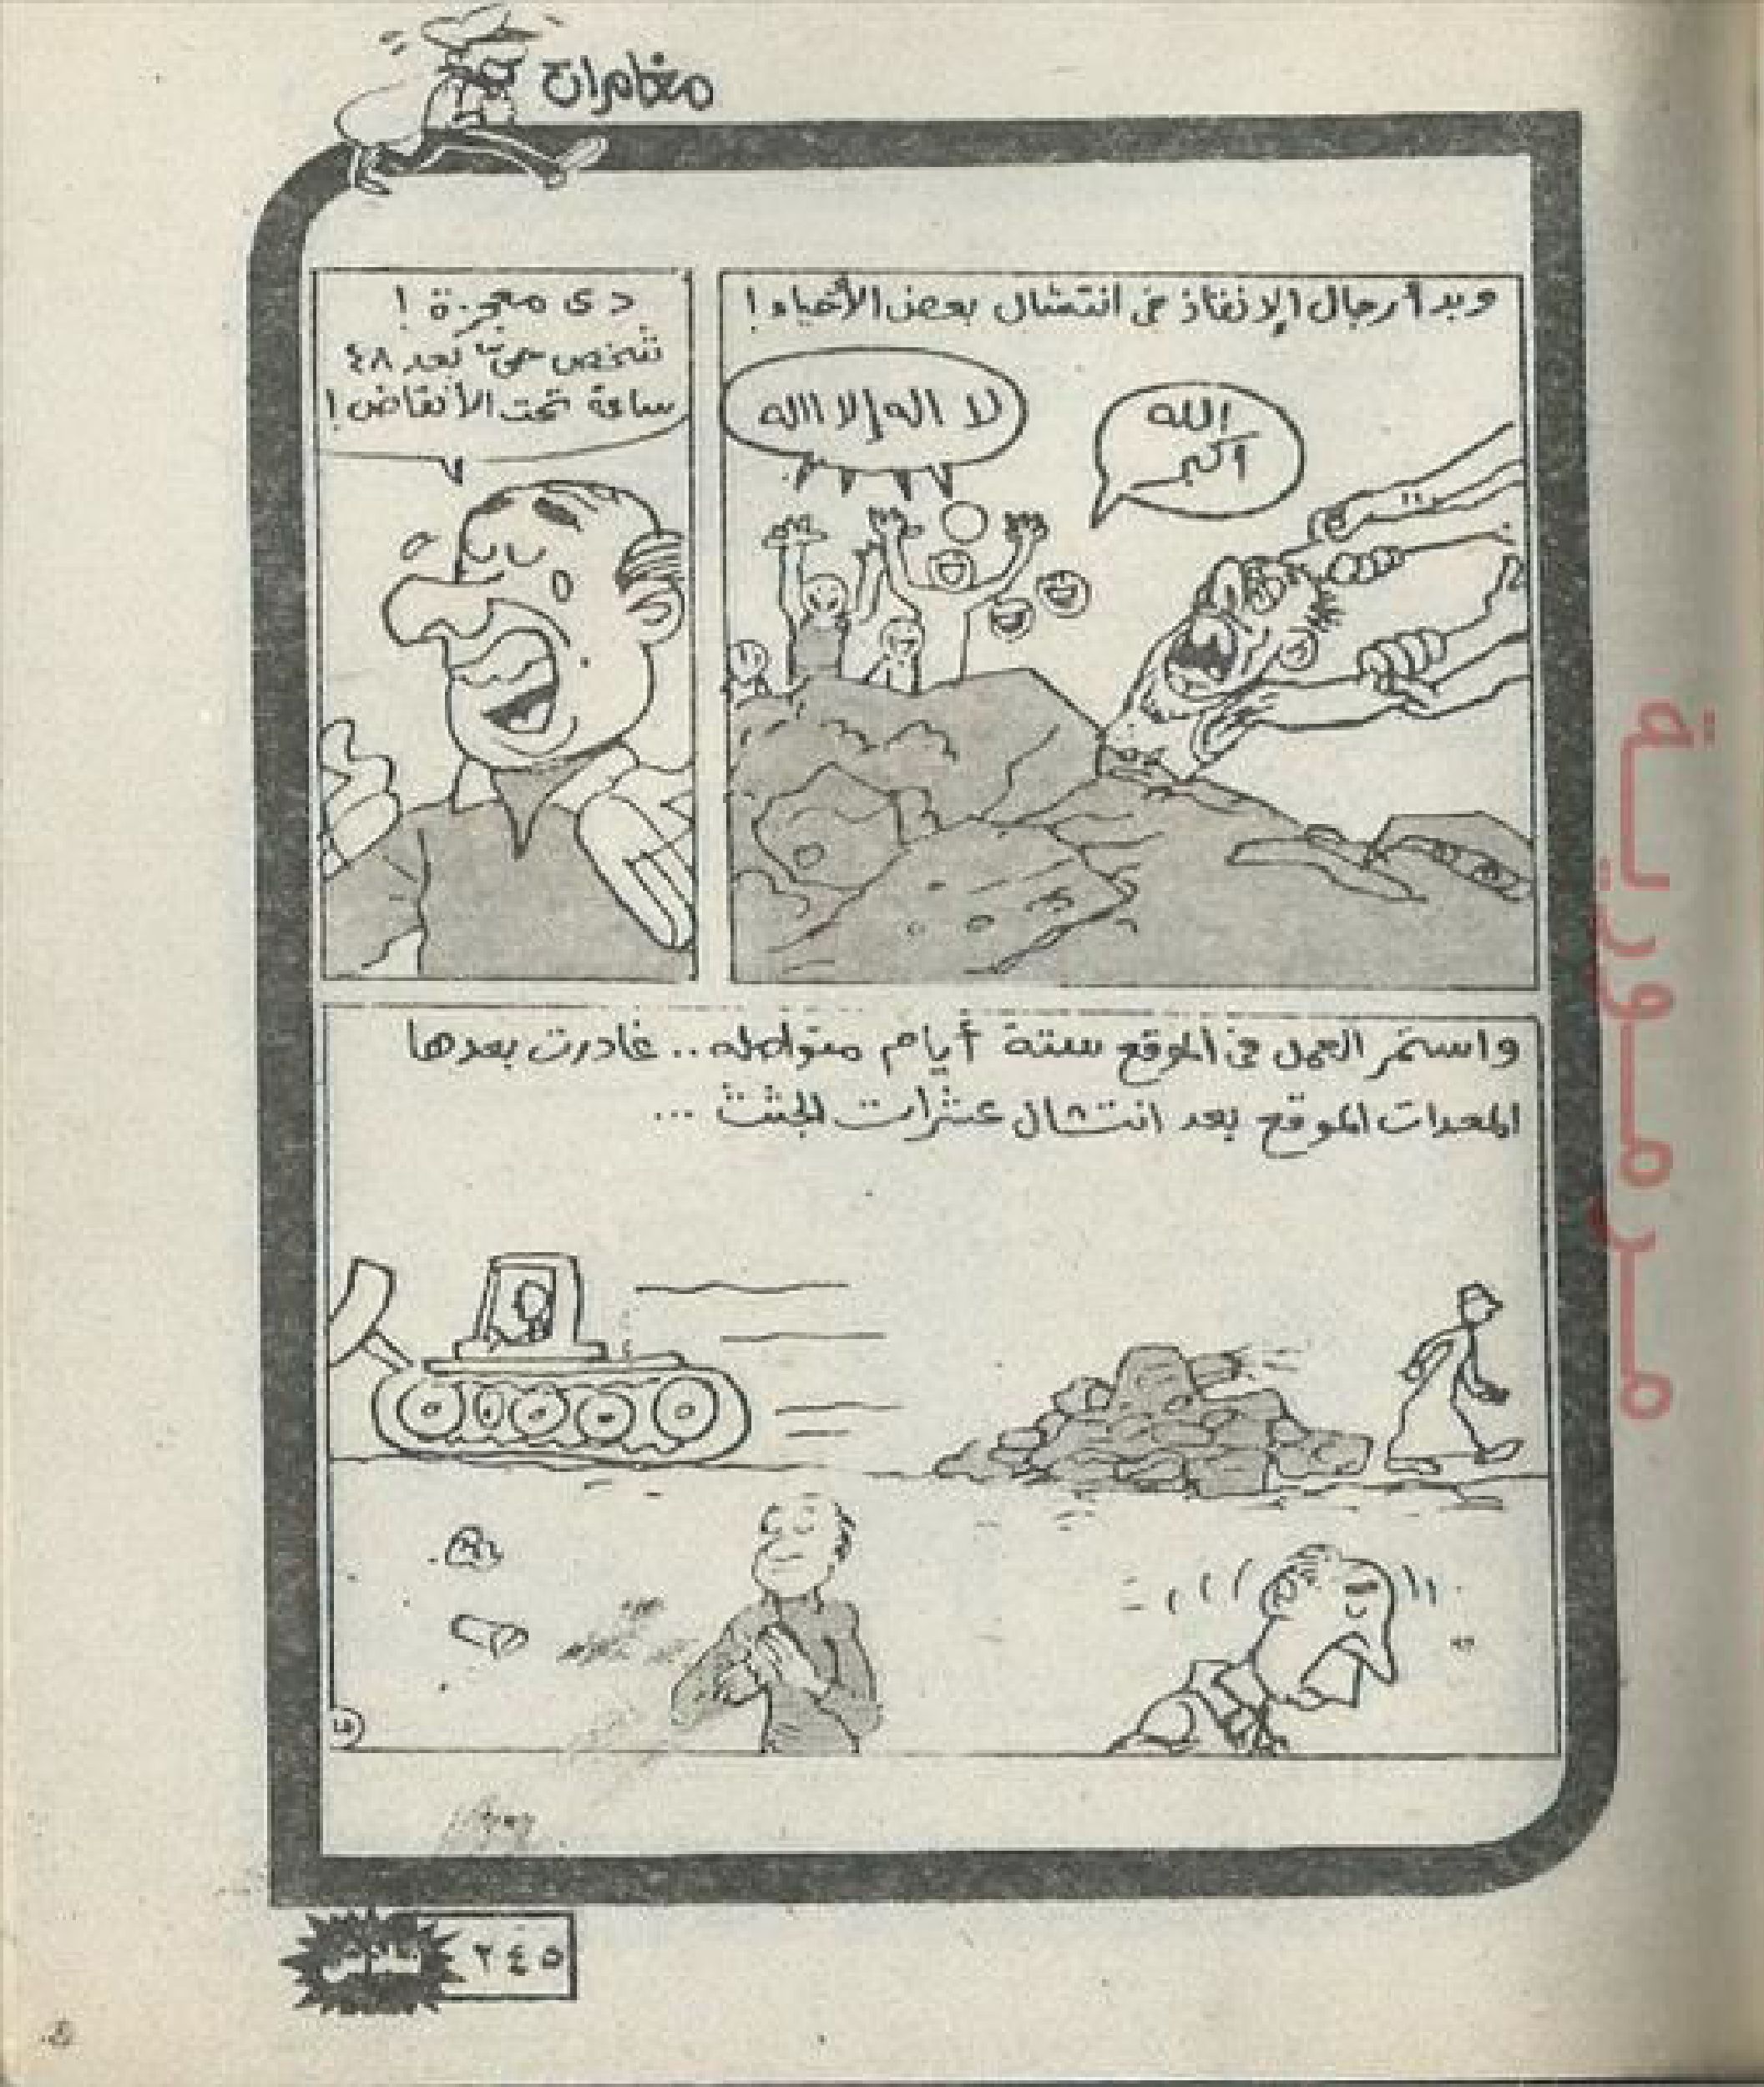 مغامرات
وبدأ رجال الإنقاذ فى انتشال بعض الأحياء !
الله
أكبر
لا اله إلا الله
دى معجزة !
شخص حىّ بعد ٤٨
ساعة تحت الأنقاض !
واستمر العمل فى الموقع ستة أيام متواصله .. غادرت بعدها
المعدات الموقع بعد انتشال عشرات الجثث ...
٢٤٥
مرمورية